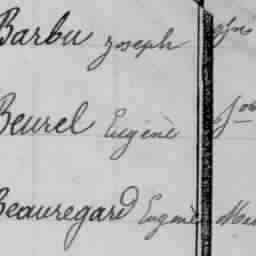 Barbu Joseph
Beurel Eugène
Beauregard Eugène